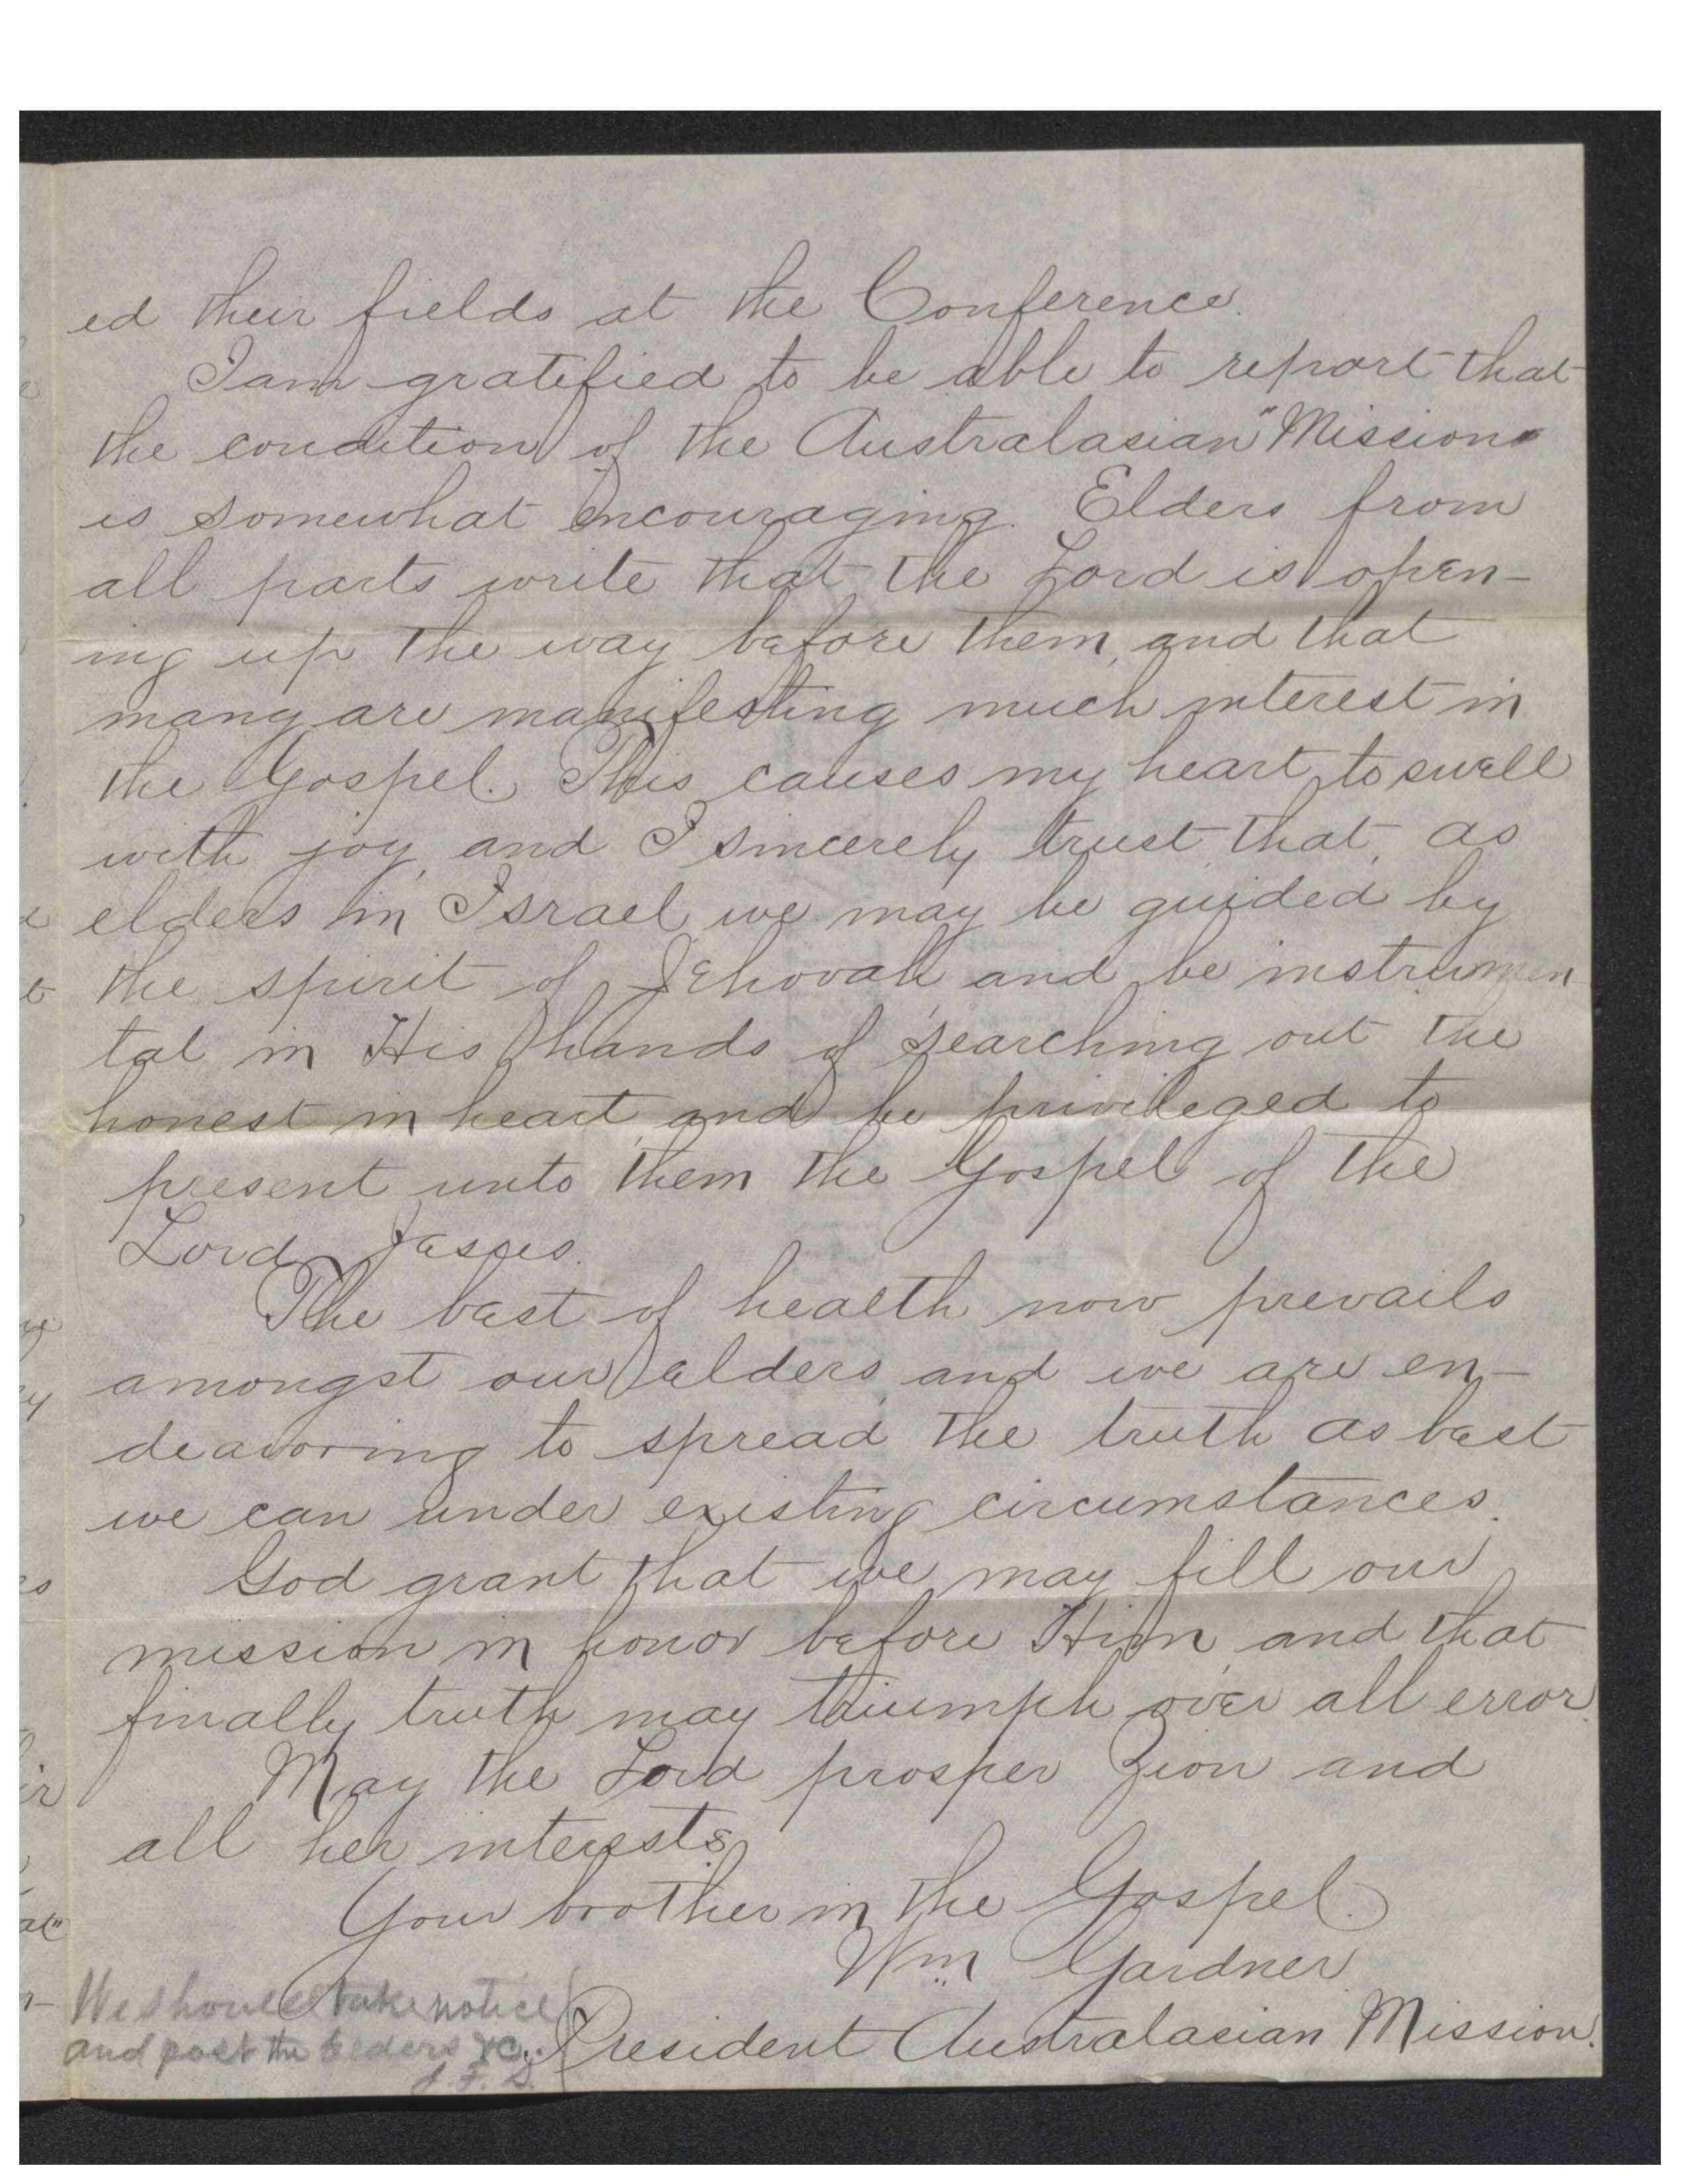 ed their fields at the Conference.
I am gratified to be able to report that
the condition of the Australasian "Mission"
is somewhat encouraging. Elders from
all parts write that the Lord is open-
ing up the way before them, and that
many are manifesting much interest in
the Gospel. This causes my heart to swell
with joy, and I sincerely trust that, as
elders in Israel we may be guided by
the spirit of Jehovah and be instrumen
tal in His hands of searching out the
honest in heart, and be privileged to
present unto them the Gospel of the
Lord Jesus.
The best of health now prevails
amongst our elders, and we are en-
deavoring to spread the truth as best
we can under existing circumstances.
God grant that we may fill our
mission in honor before Him, and that
finally truth may triumph over all error.
May the Lord prosper Zion and
all her interests.
Your brother in the Gospel.
Wm Gardner
President Australasian Mission.
We should take notice
and post the Elders &c.
J. F. S.